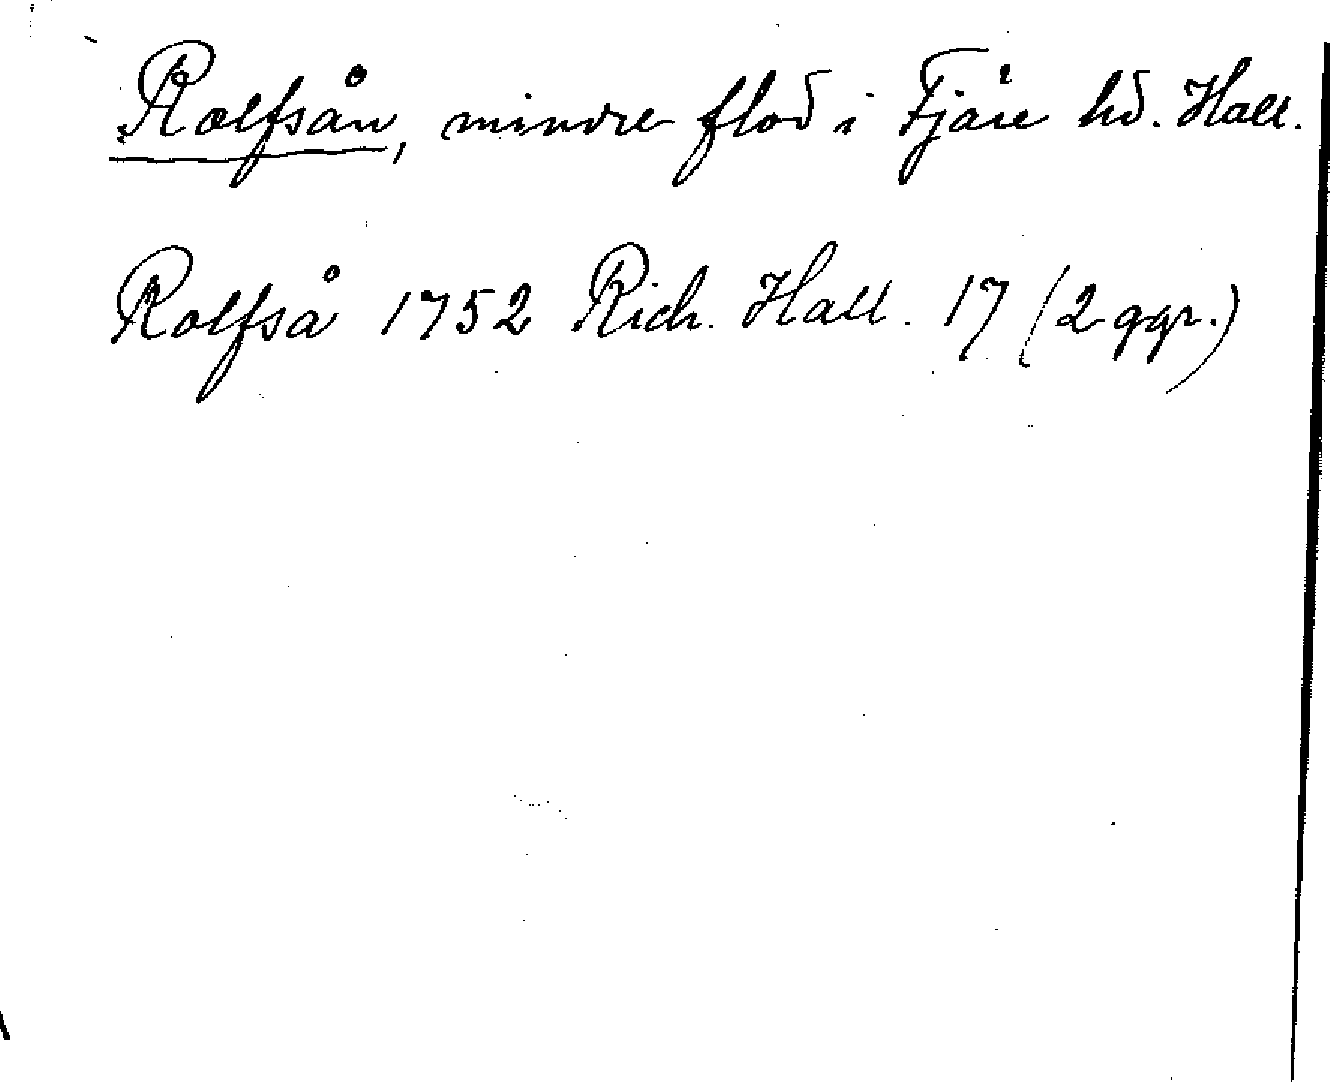 Rolfsån, mindre flod i Fjäre hd. Hall.
Rolfså 1752 Rich. Hall. 17 (2 ggr.)